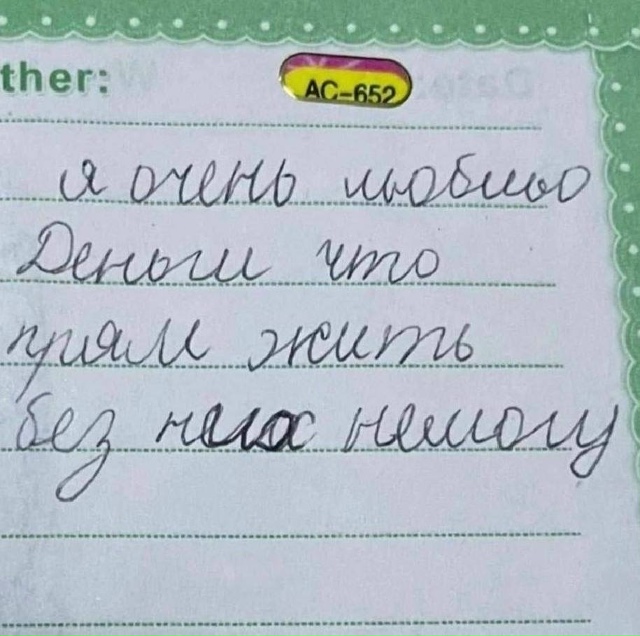 ther:
AC-652
я очень люблю
Деньги что
прям жить
без них немогу